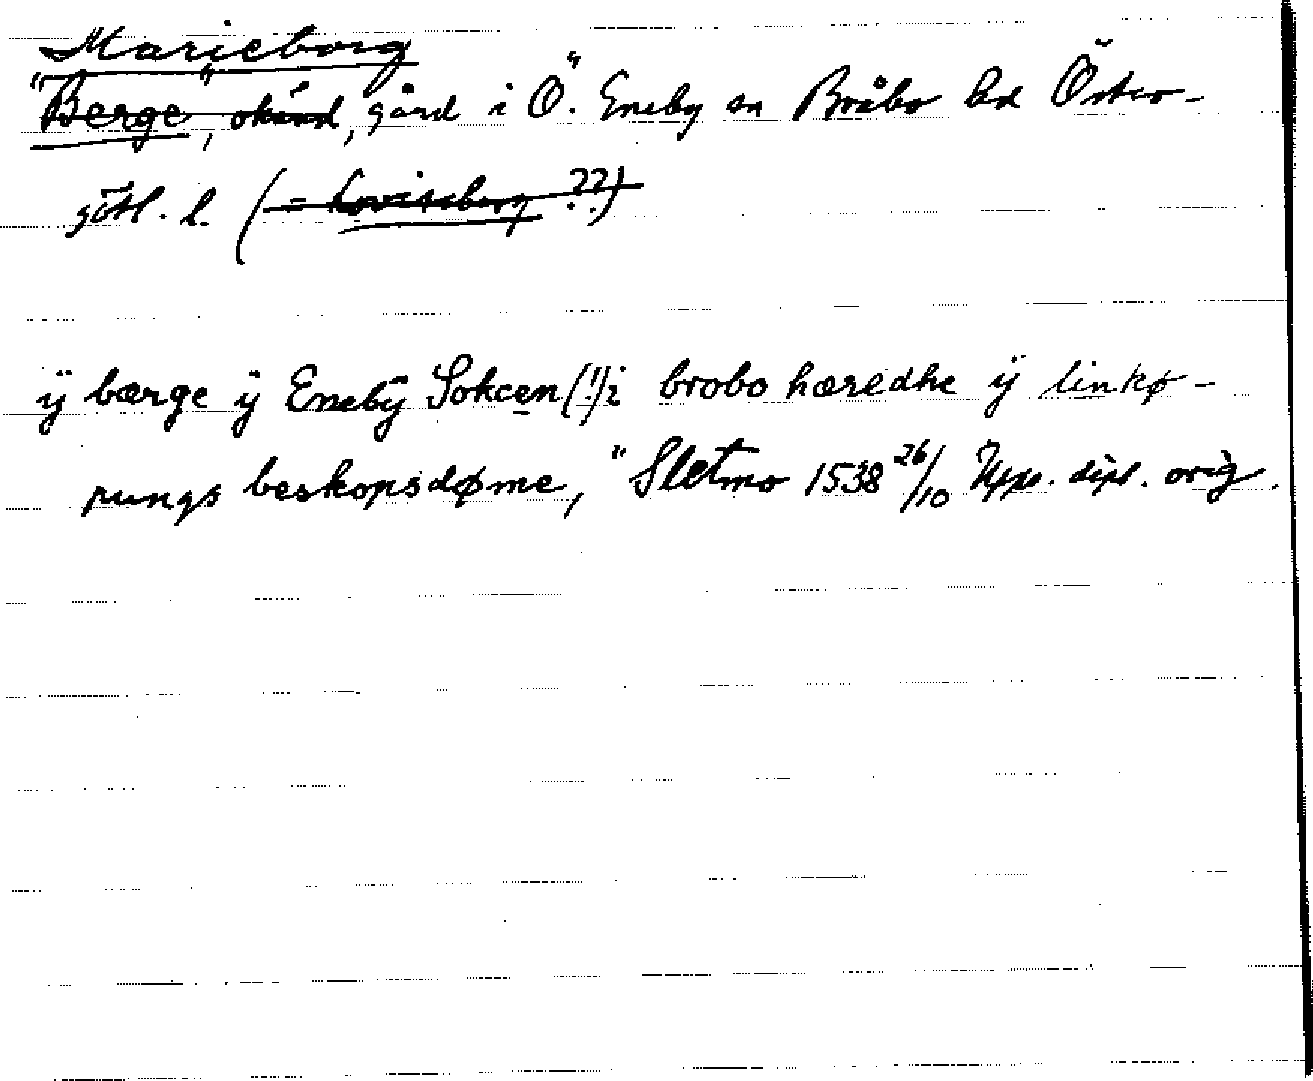 Marieborg
"Berge", okänd, gård i Ö. Eneby sn Bråbo hd Öster-
götl. l. (= Loviseberg ??)
ÿ bærge ÿ Enebÿ Sokcen (!) i brobo hæredhe ÿ linkø-
pungs beskopsdøme, "Sletmo 1538 26/10 Upps. dipl. orig.